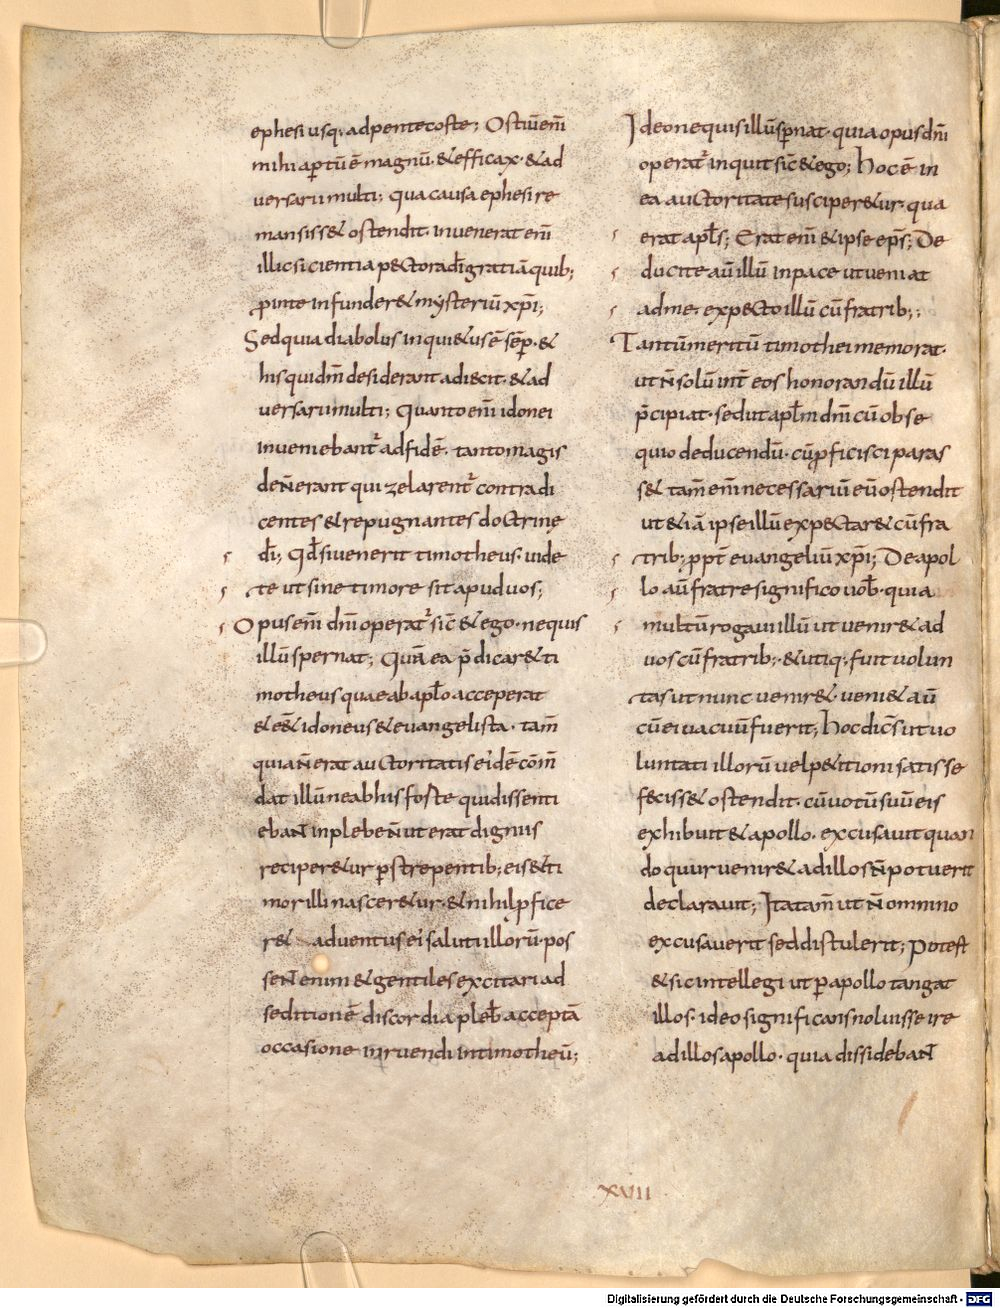 ephesi usq; ad pentecosten; Ostiū enī
mihi aptū ē magnū· & efficax· & ad
versarii multi; Qua causa ephesi re
mansiss& ostendit· invenerat enī
illic sicientia pectora dī gratiā quib;
pinte infunder& mysteriū xp̄i;
Sed quia diabolus inqui&us ē sēp· &
his quidm̄ desiderant adiecit· & ad
versarii multi; Quanto enī idonei
inveniebant᷑ ad fidē· tanto magis
den̄ erant qui zelarent᷑ contradi
centes & repugnantes doctrinę
dī; Qd̄ si venerit timotheus· uide
te ut sine timore sit apud uos;
Opus enī dnī operat᷑ sic̄ & ego· nequis
illū spernat; Quā ea p̄dicar& ti
motheus quae ab aplō acceperat
& ess& idoneus & evangelista· tam̄
quia n̄ erat auctoritatis ei dē cōm̄
dat illū ne ab his foste qui dissenti
ebant in plebe n̄ ut erat dignus
reciper&ur pstrepentib; eis & ti
mor illi nascer&ur· & nihil pfice
r& adventus ei saluti illorū· pos
sent enim & gentiles excitari ad
seditionē discordia pleb̄ acceptā
occasione inruendi in timotheū;
Ideo nequis illū spnat· quia opus dnī
operat᷑ inquit sic̄ & ego; hoc ē in
ea auctoritate susciper&ur· qua
erat apl̄s; Erat enī & ipse ep̄s; De
ducite aū illū in pace ut veniat
ad me· expecto illū cū fratrib;;
Tantū meritū timothei memorat·
ut n̄ solū int̄ eos honorandū illū
p̄cipiat· sed ut aplm̄ dnī cū obse
quio deducendū· cū pficisci paras
s& tam̄ enī necessariū eū ostendit
ut &iā ipse illū expectar& cū fra
trib; ppt̄ evangeliū xp̄i; De apol
lo aū fratre significo uob̄· quia
multū rogavi illū ut venir& ad
uos cū fratrib;· & utiq; fuit uolun
tas ut nunc venir&· veni& aū
cū ei vacuū fuerit; hoc dic̄s ut uo
luntati illorū vel petitioni satis se
feciss& ostendit· cū votū suū eis
exhibuit & apollo· excusavit quan
do quur venir& ad illos n̄ potuerit
declaravit; Ita tam̄ ut n̄ omnino
excusaverit sed distulerit; Potest
& sic intellegi ut p apollo tangat
illos· ideo significans noluisse ire
ad illos apollo· quia dissidebant
XVIII
Digitalisierung gefördert durch die Deutsche Forschungsgemeinschaft - DFG